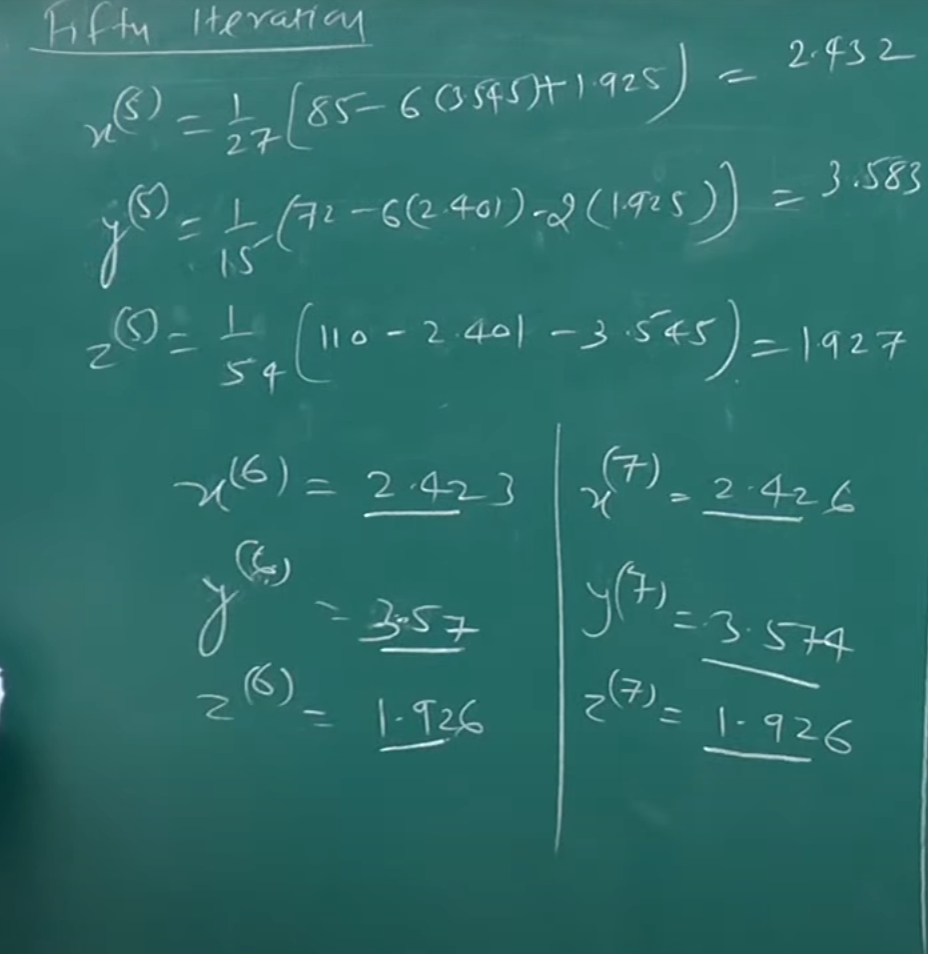 Fifth Iteration
x^(5) = 1/27 (85 - 6(3.545) + 1.925) = 2.432
y^(5) = 1/15 (72 - 6(2.401) - 2(1.925)) = 3.583
z^(5) = 1/54 (110 - 2.401 - 3.545) = 1.927
x^(6) = 2.423
y^(6) = 3.57
z^(6) = 1.926
x^(7) = 2.426
y^(7) = 3.574
z^(7) = 1.926